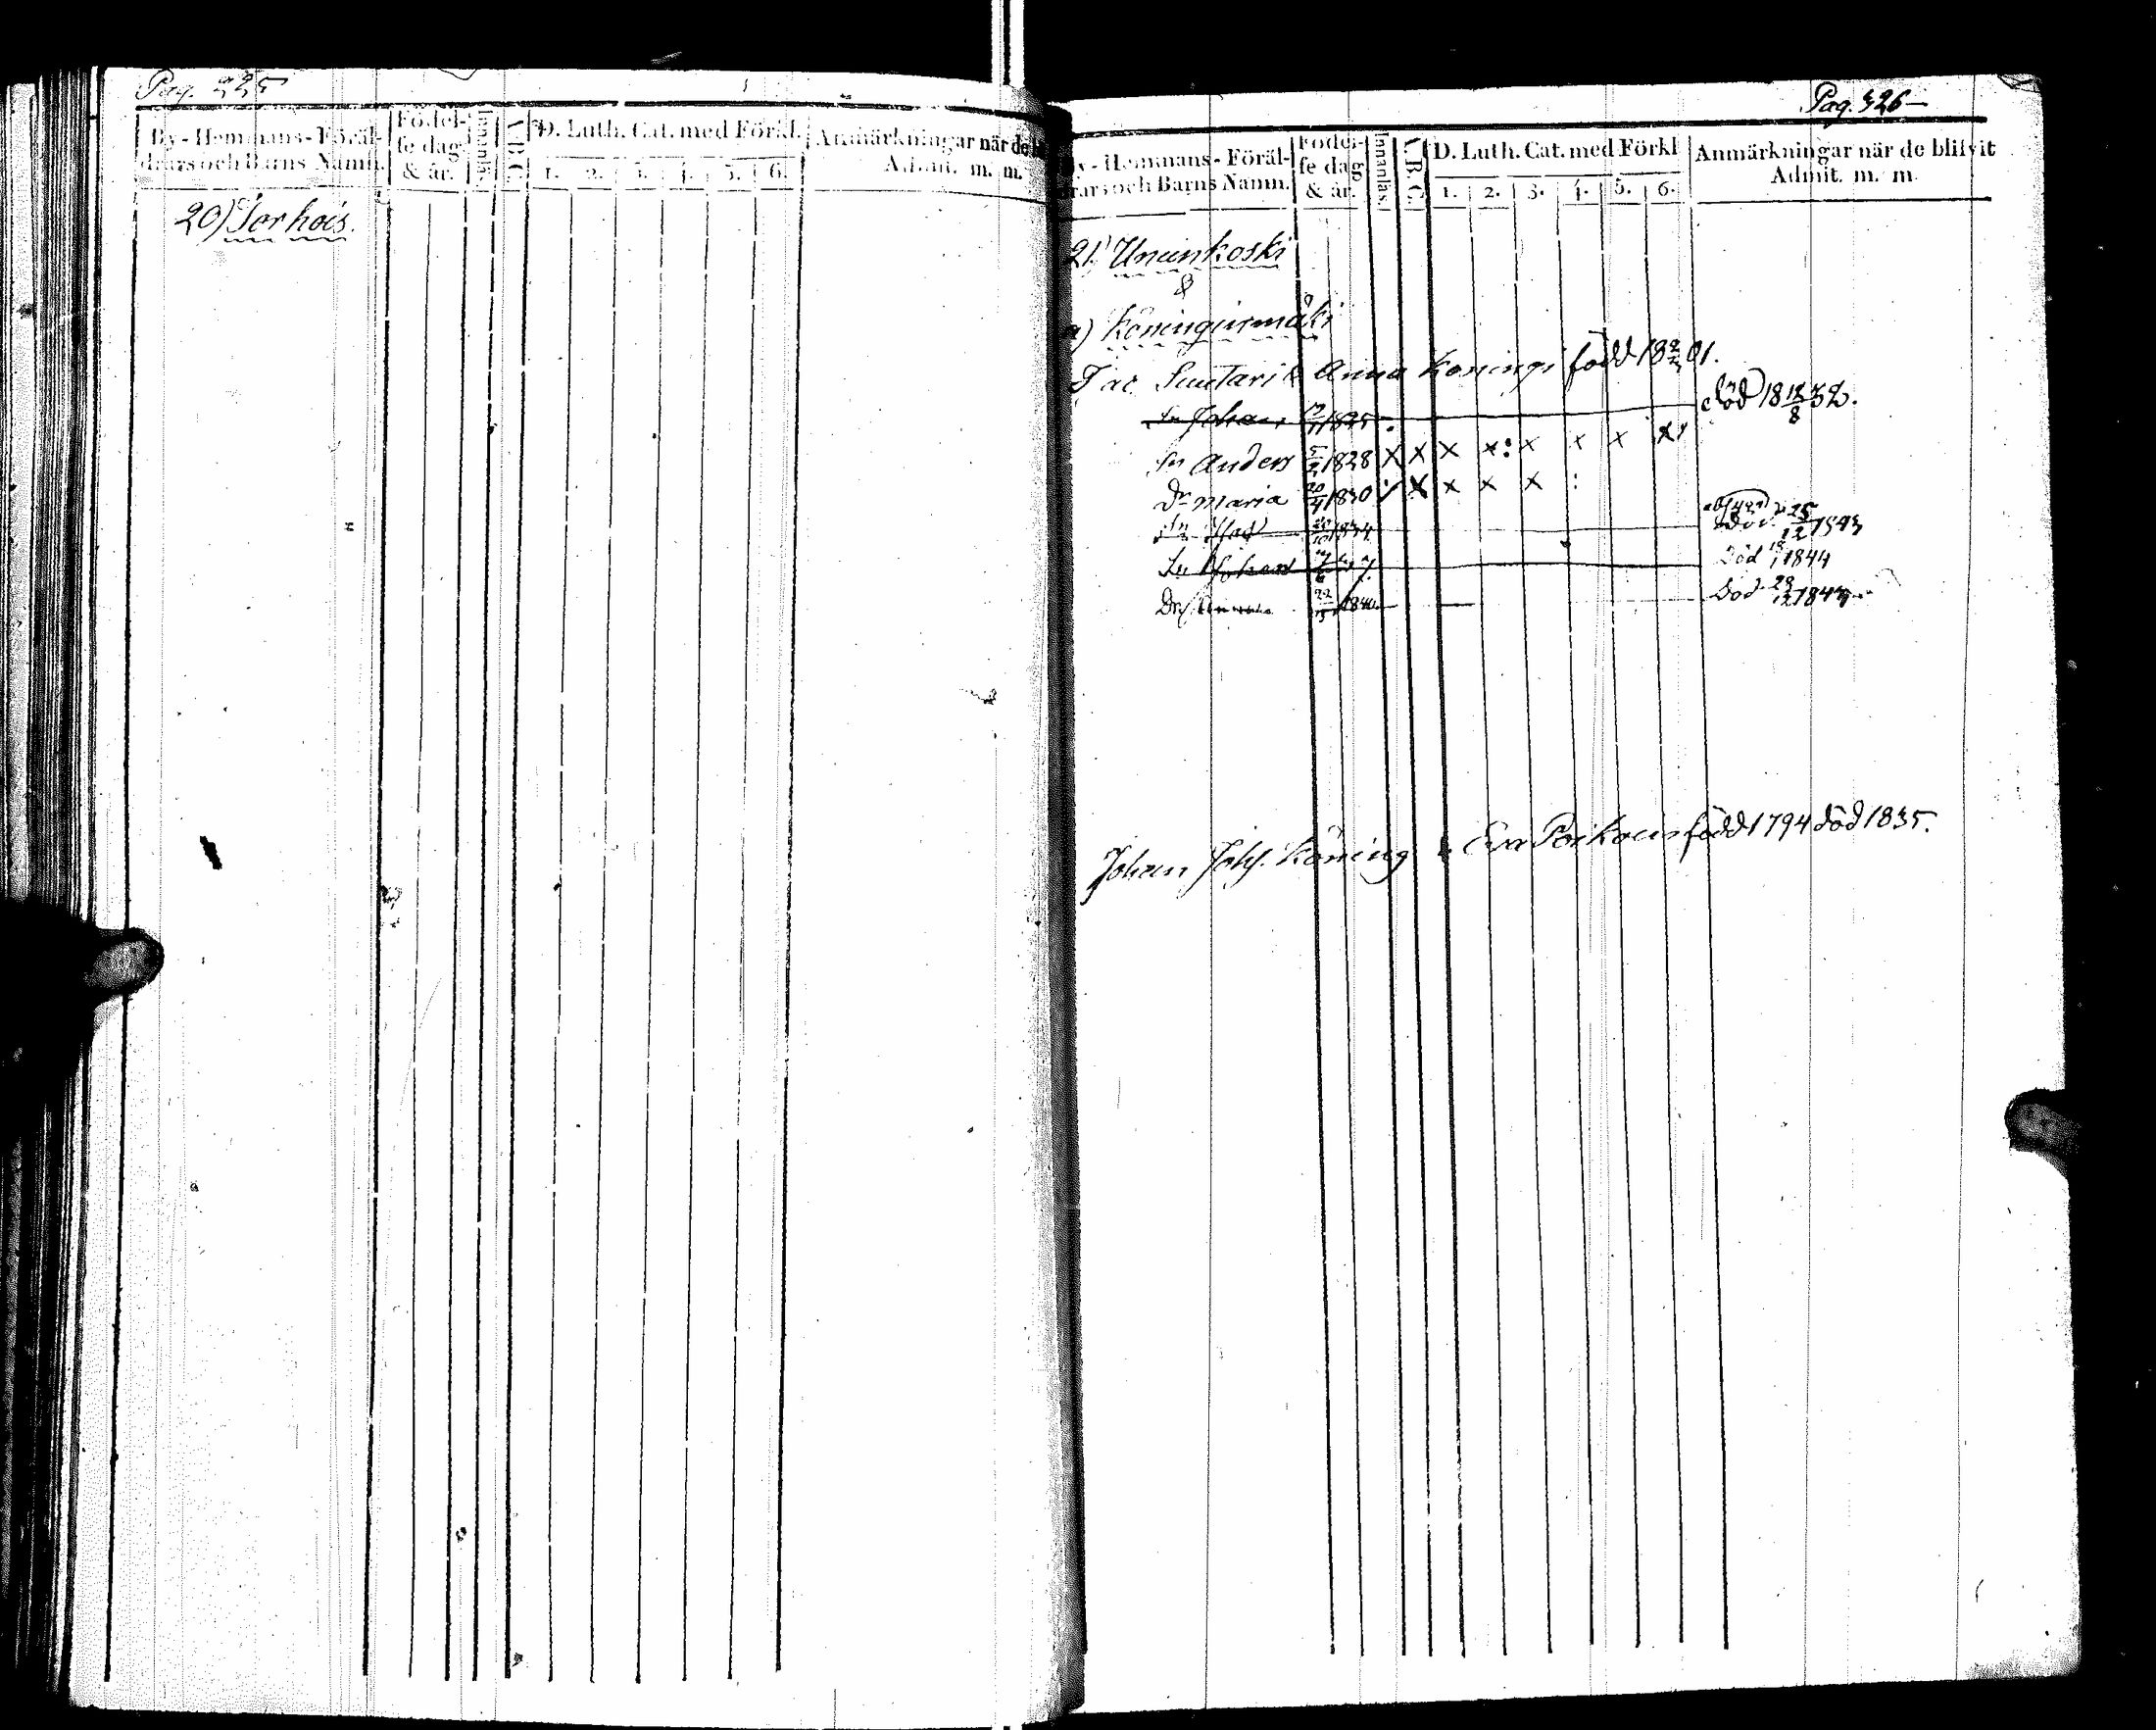 Pag. 325
By-Hemmans-Föräl-
drars och Barns Namn.
Födel-
se dag
& år.
Innanläs.
A.B.C.
D. Luth. Cat. med Förkl.
1. 2. 3. 4. 5. 6.
Anmärkningar när de
Admit. m. m.
20)
Pag. 326
By-Hemmans-Föräl-
drars och Barns Namn.
Födel-
se dag
& år.
Innanläs.
A.B.C.
D. Luth. Cat. med Förkl
1. 2. 3. 4. 5. 6.
Anmärkningar när de blifvit
Admit. m. m.
21) Ununkoski
&
a) Köninginmäki
Suutari & Anna Köningi född 18 01.
Sn Johan 1825 död 18 12/8 32.
Sn Anders 5/2 1828 x x x x : x x x x
Dr Maria 20/4 1830 x x x x :
Sn 1834 25/12 1843
Sn Johan död 1844
Dr 22 1840 död 28/12 1844
Johan Joh. Köning & Eva Poikolain född 1794 död 1835.